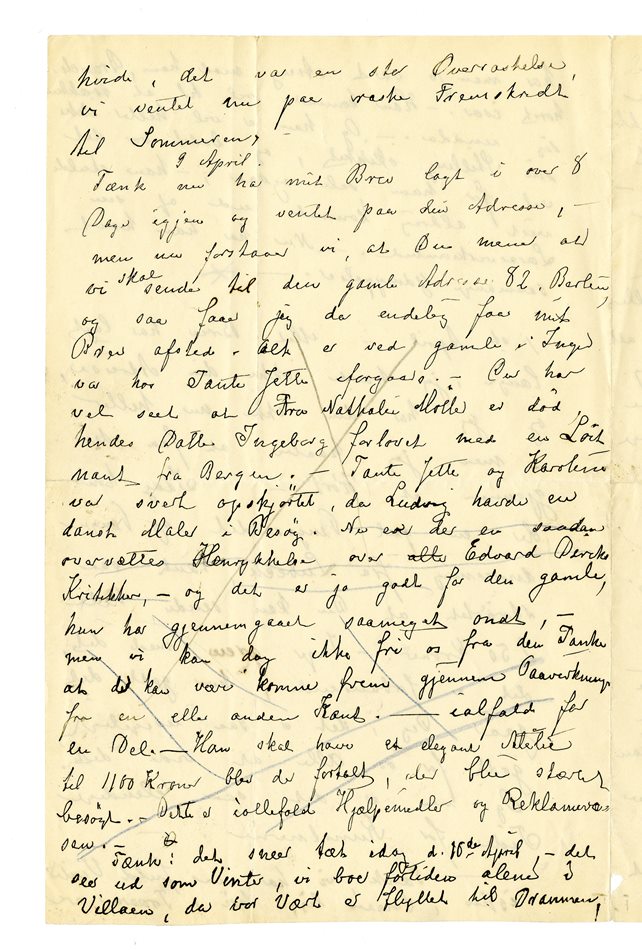 hvide, det var en stor Overraskelse,
vi ventet nu paa raske Fremskridt
til Sommeren,
9 April.
Tænk nu har mit Brev lagt i over 8
Dage igjen og ventet paa din Adresse, –
men nu forstaar vi, at Du mener at
vi skal sende til den gamle Adresse 82. Berlin,
og saa faar jeg da endelig faa mit
Brev afsted. Alt er ved gamle. Inger
var hos Tante Jette iforgaars. – Du har
vel seet at Fru Nathalie Mölle er død,
hendes Datter Ingeborg forlovet med en Löit
nant fra Bergen. – Tante Jette og Karoline
var svert opskjörtet, da Ludvig havde en
dansk Maler i Besög. Nu er der en saadan
overvættes Henrykkelse over alle Edvard Dericks
Kritikker, – og det er jo godt for den gamle,
hun har gjennemgaaet saameget ondt, –
men vi kan dog ikke fri os fra den Tanke
at det kan være komme frem gjennem Paavirkning
fra en eller anden Kant. – ialfald for
en Del. – Han skal have et elegant Atelie
til 1100 Kroner blev der fortalt, der blir stærkt
besögt. – Dette er iallefald Hjælpemidler og Reklamevæ
sen. –
– Tænk! det sneer tæt idag d. 10de April, – det
seer ud som Vinter, vi boe fortiden alene i
Villaen, da vor Vært er flyttet til Drammen,